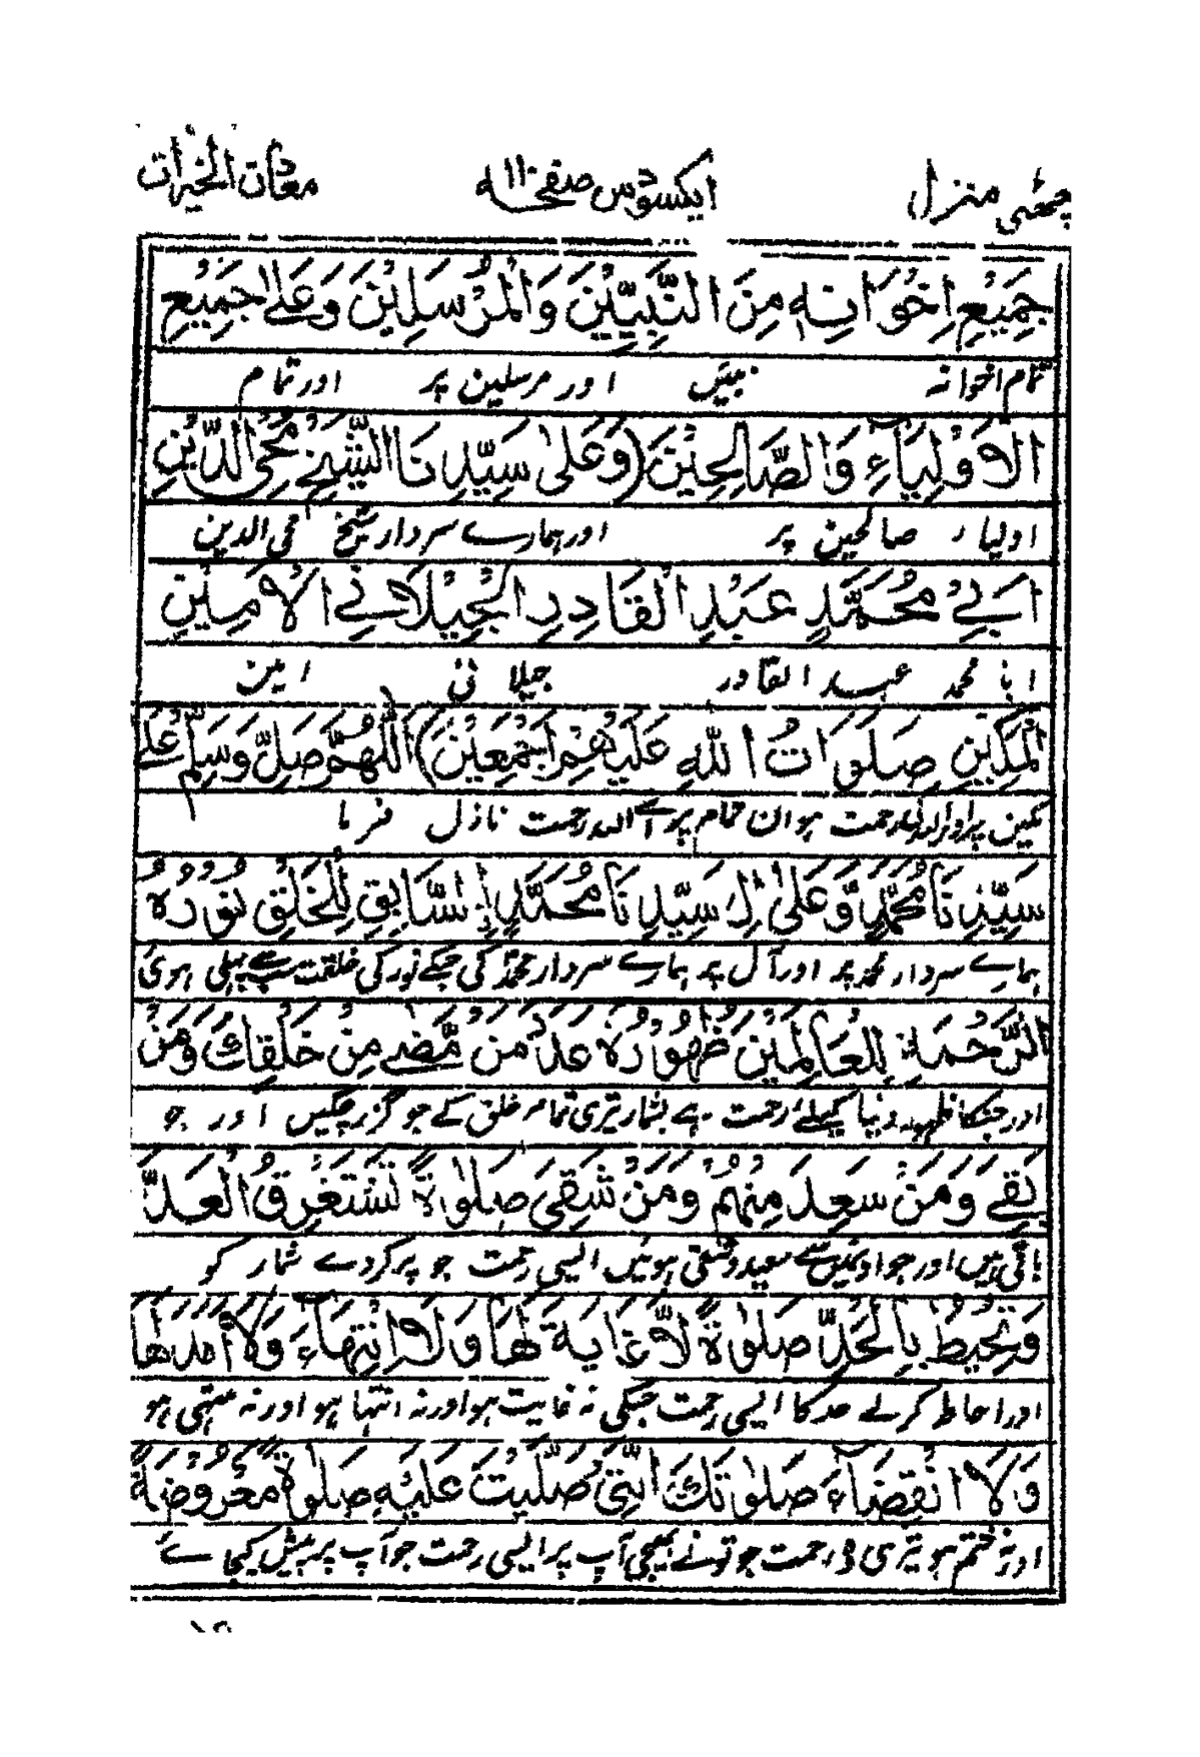 چھٹی منزل ایکسودس صفحہ ۱۱۰ معدن الخیرات
جَمِيْعِ اِخْوَانِهٖ مِنَ النَّبِيِّيْنَ وَالْمُرْسَلِيْنَ وَعَلٰى جَمِيْعِ
تمام اخوانہ نبیین اور مرسلین پر اور تمام
الْاَوْلِيَآءِ وَالصَّالِحِيْنَ (وَعَلٰى سَيِّدِنَا الشَّيْخِ مُحْيِ الدِّيْنِ
اولیاء صالحین پر اور ہمارے سردار شیخ محی الدین
اَبِيْ مُحَمَّدٍ عَبْدِ الْقَادِرِ الْجِيْلَانِيْ الْاَمِيْنِ
ابا محمد عبد القادر جیلانی امین
الْمَكِيْنِ صَلَوَاتُ اللهِ عَلَيْهِمْ اَجْمَعِيْنَ) اَللّٰهُمَّ صَلِّ وَسَلِّمْ عَلٰى
مکین پر اور اللہ کی رحمت ہو ان تمام پر اے اللہ رحمت نازل فرما
سَيِّدِنَا مُحَمَّدٍ وَّعَلٰى اٰلِ سَيِّدِنَا مُحَمَّدٍ نِ السَّابِقِ لِلْخَلْقِ نُوْرُهٗ
ہمارے سردار محمد پر اور آل پر ہمارے سردار محمد کی جنکے نور کی خلقت سب سے پہلی ہوئی
الرَّحْمَةِ لِلْعَالَمِيْنَ ظُهُوْرُهٗ عَدَدَ مَنْ مَّضٰى مِنْ خَلْقِكَ وَمَنْ
اور جنکا ظہور دنیا کیلئے رحمت ہے بشمار تیری تمام خلق کے جو گزر چکیں اور جو
بَقِيَ وَمَنْ سَعِدَ مِنْهُمْ وَمَنْ شَقِيَ صَلٰوةً تَسْتَغْرِقُ الْعَدَّ
باقی ہیں اور جو اونمیں سے سعید و شقی ہوئیں ایسی رحمت جو پر کردے شمار کو
وَتُحِيْطُ بِالْحَدِّ صَلٰوةً لَّا غَايَةَ لَهَا وَلَا انْتِهَآءَ وَلَا اَمَدَ لَهَا
اور احاطہ کرلے حد کا ایسی رحمت جسکی نہ غایت ہو اور نہ انتہا ہو اور نہ منتہی ہو
وَلَا انْقِضَآءَ صَلٰوتَكَ الَّتِيْ صَلَّيْتَ عَلَيْهِ صَلٰوةً مَّعْرُوْضَةً
اور نہ ختم ہو تیری وہ رحمت جو تونے بھیجی آپ پر ایسی رحمت جو آپ پر پیش کیجاے